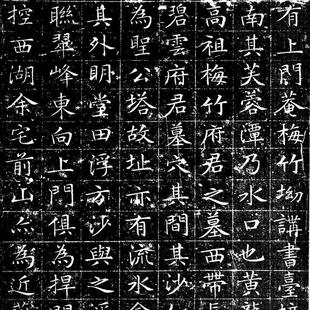 有上門菴梅竹坳講書臺
南其芙蓉潭乃水口也黃龍
高祖梅竹府君之墓西帶
碧雲府君墓穴其間其沙
為聖公塔故址亦有流水
其外明堂田浮方沙與之浮
聯翠峰東向上門俱為捍門
控西湖余宅前山亦為近